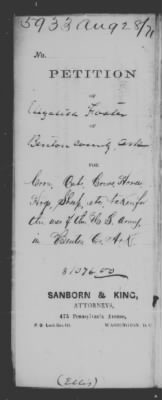 5933 Aug 28/71
No.
PETITION
OF
Angelica Foster
OF
Benton County Ark
FOR
Corn, Oats, Cows Horse
Hogs, Sheep, etc. taken for
the use of the U S Army
in Benton Co. Ark
$1376.50
SANBORN & KING,
ATTORNEYS,
475 Pennsylvania Avenue,
WASHINGTON, D.C.
(Ellis)